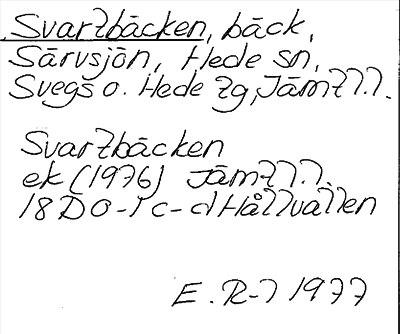 Svartbäcken, bäck,
Särvsjön, Hede sn,
Svegs o. Hede tg, Jämtl.
Svartbäcken
ek (1976) Jämtl.
18D 0-1 c-d Hållvallen
E. R-l 1977